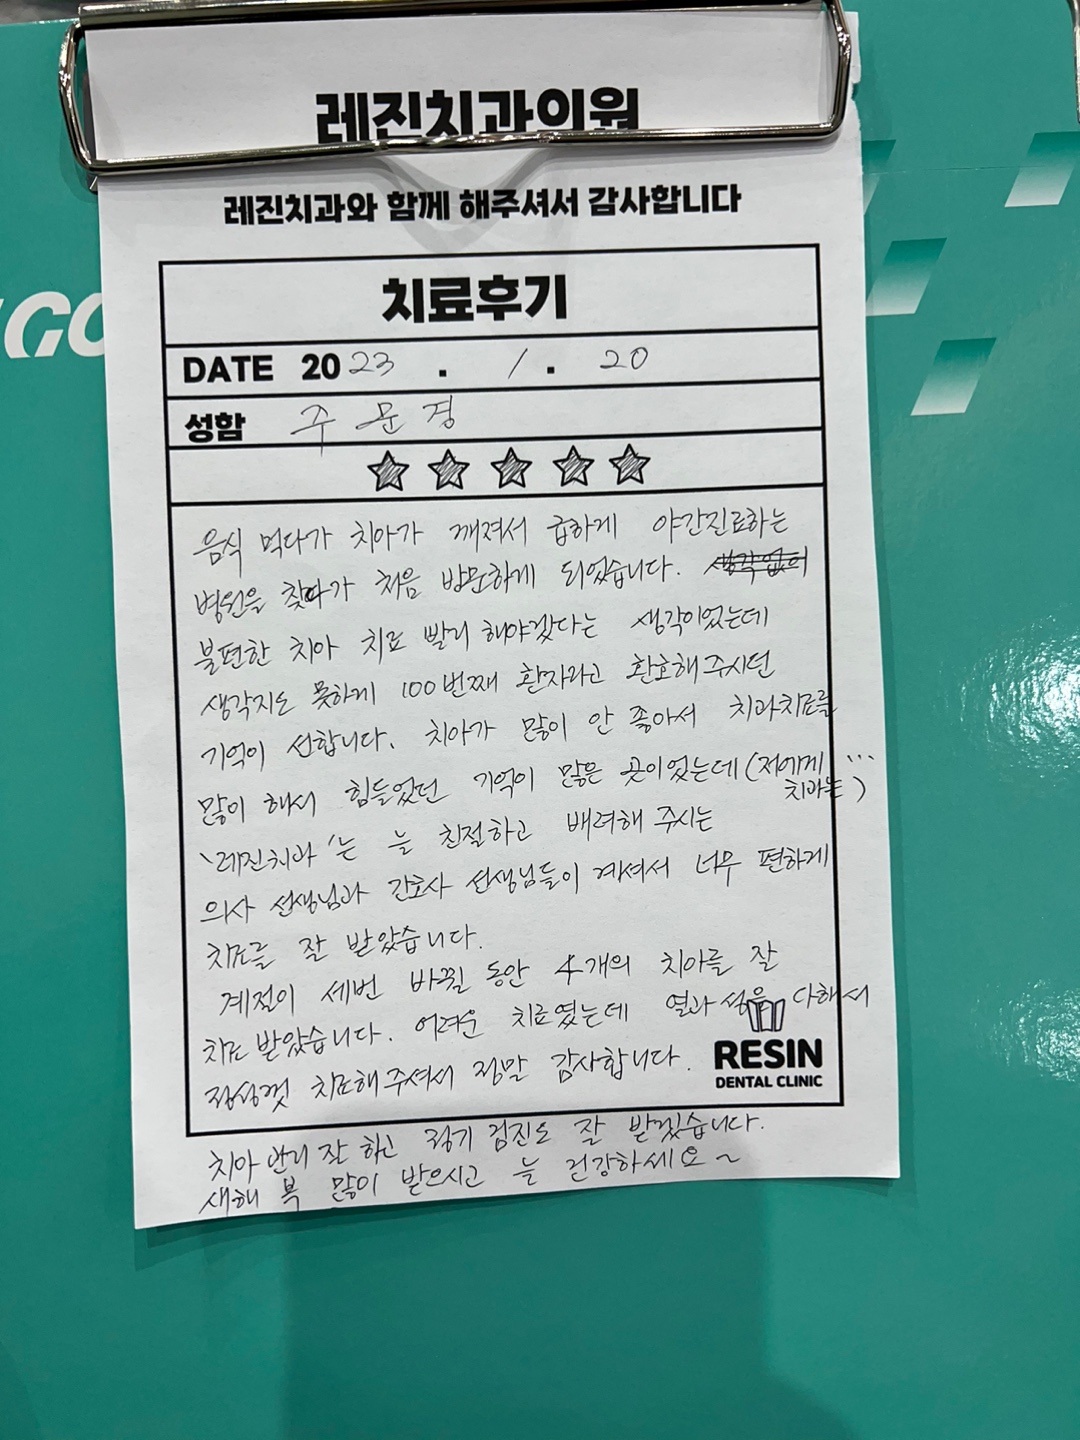 레진치과의원
레진치과와 함께 해주셔서 감사합니다
치료후기
DATE 2023 . 1 . 20
성함 주문경
음식 먹다가 치아가 깨져서 급하게 야간진료하는
병원을 찾다가 처음 방문하게 되었습니다.
불편한 치아 치료 빨리 해야겠다는 생각이었는데
생각지도 못하게 100번째 환자라고 환호해주시던
기억이 선합니다. 치아가 많이 안 좋아서 치과치료를
많이 해서 힘들었던 기억이 많은 곳이었는데 (저에게 …
치과는)
'레진치과'는 늘 친절하고 배려해 주시는
의사 선생님과 간호사 선생님들이 계셔서 너무 편하게
치료를 잘 받았습니다.
계절이 세번 바뀔 동안 4개의 치아를 잘
치료 받았습니다. 어려운 치료였는데 열과 성을 다해서
정성껏 치료해주셔서 정말 감사합니다.
RESIN
DENTAL CLINIC
치아 관리 잘 하고 정기 검진도 잘 받겠습니다.
새해 복 많이 받으시고 늘 건강하세요~